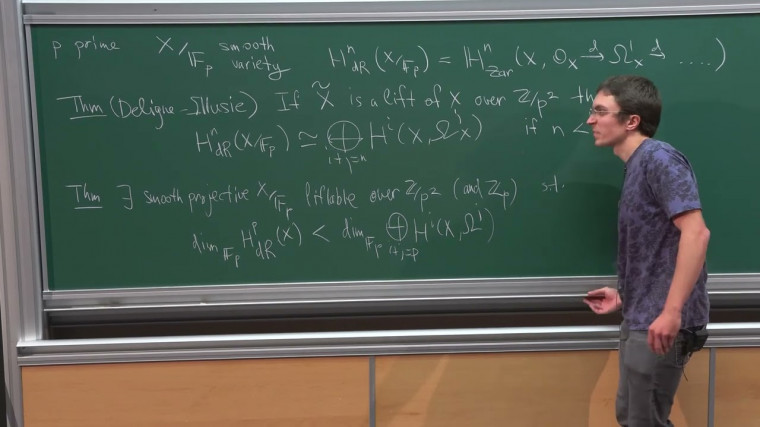 p prime X/𝔽_p smooth variety H^n_{dR}(X/𝔽_p) = ℍ^n_{Zar}(X, 𝒪_X →^d Ω^1_X →^d ....)
Thm (Deligne-Illusie) If X̃ is a lift of X over ℤ/p² th
H^n_{dR}(X/𝔽_p) ≃ ⊕_{i+j=n} H^i(X, Ω^j_X) if n <
Thm ∃ smooth projective X/𝔽_p liftable over ℤ/p² (and ℤ_p) s.t.
dim_{𝔽_p} H^p_{dR}(X) < dim_{𝔽_p} ⊕_{i+j=p} H^i(X, Ω^j)